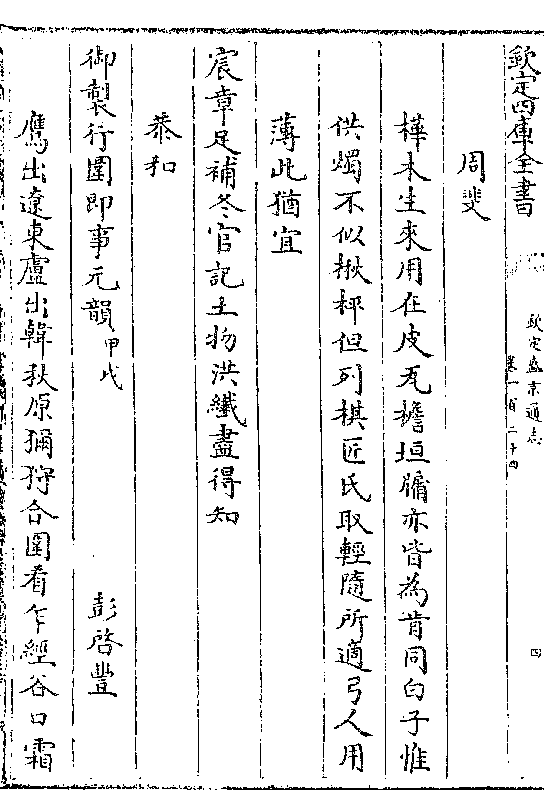 欽定四庫全書
欽定盛京通志
卷一百二十四
四
周斐
樺木生來用在皮瓦檐垣牖亦皆為肯同臼子惟
供燭不似楸枰但列棋匠氏取輕隨所適弓人用
薄此猶宜
宸章足補冬官記土物洪纖盡得知
恭和
御製行圍即事元韻甲戌
彭啓豐
鷹出遼東盧出韓秋原獮狩合圍看乍經谷口霜